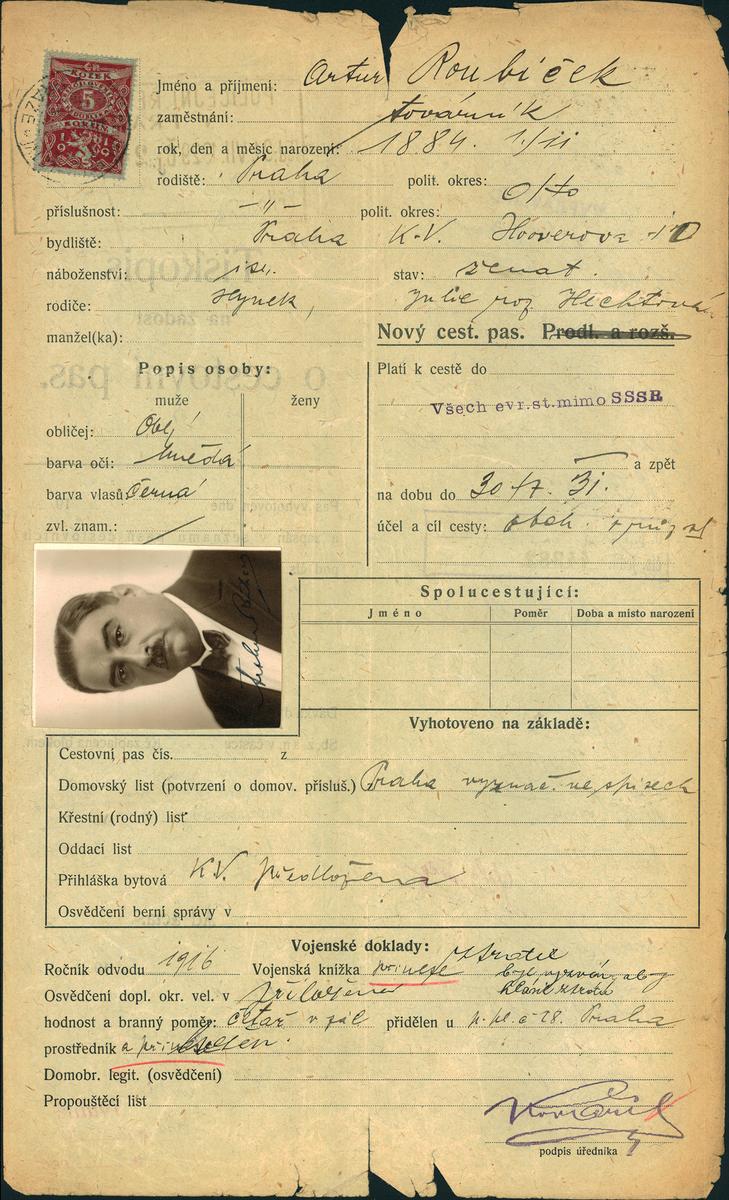 5
Jméno a příjmení: Artur Roubíček
zaměstnání: továrník
rok, den a měsíc narození: 1884. 1./II
rodiště: Praha polit. okres: o/to
příslušnost: —„— polit. okres:
bydliště: Praha K.V. Hooverova 10
náboženství: isr. stav: ženat.
rodiče: Hynek, Julie roz. Hechtová
manžel(ka):
Nový cest. pas. Prodl. a rozš.
Popis osoby:
muže ženy
obličej: Obl.
barva očí: hnědá
barva vlasů: černá
zvl. znam.:
Platí k cestě do
Všech evr.st.mimo SSSR
a zpět
na dobu do 30./7. 31.
účel a cíl cesty: obch.
Artur Roubíček
Spolucestující:
Jméno Poměr Doba a místo narození
Vyhotoveno na základě:
Cestovní pas čís. z
Domovský list (potvrzení o domov. přísluš.) Praha vyznač. ve spisech
Křestní (rodný) list
Oddací list
Přihláška bytová K.V. předložena
Osvědčení berní správy v
Vojenské doklady:
Ročník odvodu 1916 Vojenská knížka ztratil
Osvědčení dopl. okr. vel. v přiložena
hodnost a branný poměr: četař v zál přidělen u p. pl. č 28. Praha
prostředník
Domobr. legit. (osvědčení)
Propouštěcí list
podpis úředníka